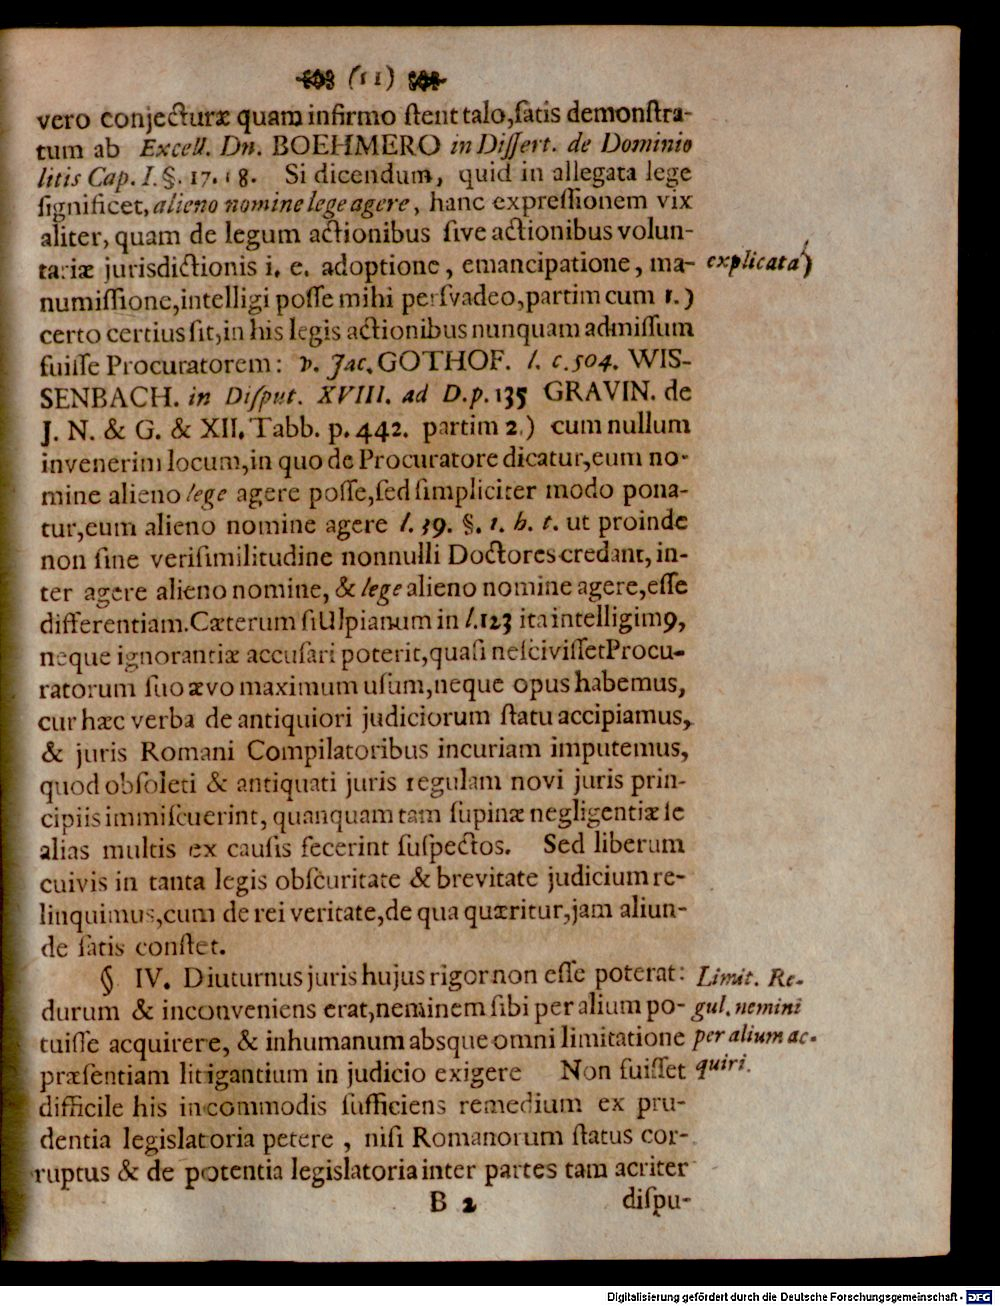 (11)
vero conjecturæ quam infirmo ſtent talo,ſatis demonſtra-
tum ab Excell. Dn. BOEHMERO in Diſſert. de Dominio
litis Cap. I. §. 17. 18. Si dicendum, quid in allegata lege
ſignificet, alieno nomine lege agere, hanc expreſſionem vix
aliter, quam de legum actionibus ſive actionibus volun-
tariæ jurisdictionis i. e. adoptione, emancipatione, ma-
explicata)
numiſſione,intelligi poſſe mihi perſvadeo,partim cum 1.)
certo certius ſit,in his legis actionibus nunquam admiſſum
fuiſſe Procuratorem: v. Jac. GOTHOF. l. c. 504. WIS-
SENBACH. in Diſput. XVIII. ad D. p. 135 GRAVIN. de
J. N. & G. & XII. Tabb. p. 442. partim 2.) cum nullum
invenerim locum,in quo de Procuratore dicatur,eum no-
mine alieno lege agere poſſe,ſed ſimpliciter modo pona-
tur,eum alieno nomine agere l. 39. §. 1. h. t. ut proinde
non ſine veriſimilitudine nonnulli Doctores credant, in-
ter agere alieno nomine, & lege alieno nomine agere,eſſe
differentiam. Cæterum ſi Ulpianum in l. 123 ita intelligimꝰ,
neque ignorantiæ accuſari poterit,quaſi neſciviſſet Procu-
ratorum ſuo ævo maximum uſum,neque opus habemus,
cur hæc verba de antiquiori judiciorum ſtatu accipiamus,
& juris Romani Compilatoribus incuriam imputemus,
quod obſoleti & antiquati juris regulam novi juris prin-
cipiis immiſcuerint, quanquam tam ſupinæ negligentiæ ſe
alias multis ex cauſis fecerint ſuſpectos. Sed liberum
cuivis in tanta legis obſcuritate & brevitate judicium re-
linquimus,cum de rei veritate,de qua quæritur,jam aliun-
de ſatis conſtet.
§ IV. Diuturnus juris hujus rigor non eſſe poterat:
durum & inconveniens erat,neminem ſibi per alium po-
tuiſſe acquirere, & inhumanum absque omni limitatione
præſentiam litigantium in judicio exigere Non fuiſſet
Limit. Re-
gul. nemini
per alium ac-
quiri.
difficile his incommodis ſufficiens remedium ex pru-
dentia legislatoria petere, niſi Romanorum ſtatus cor-
ruptus & de potentia legislatoria inter partes tam acriter
B 2 diſpu-
Digitalisierung gefördert durch die Deutsche Forschungsgemeinschaft - DFG